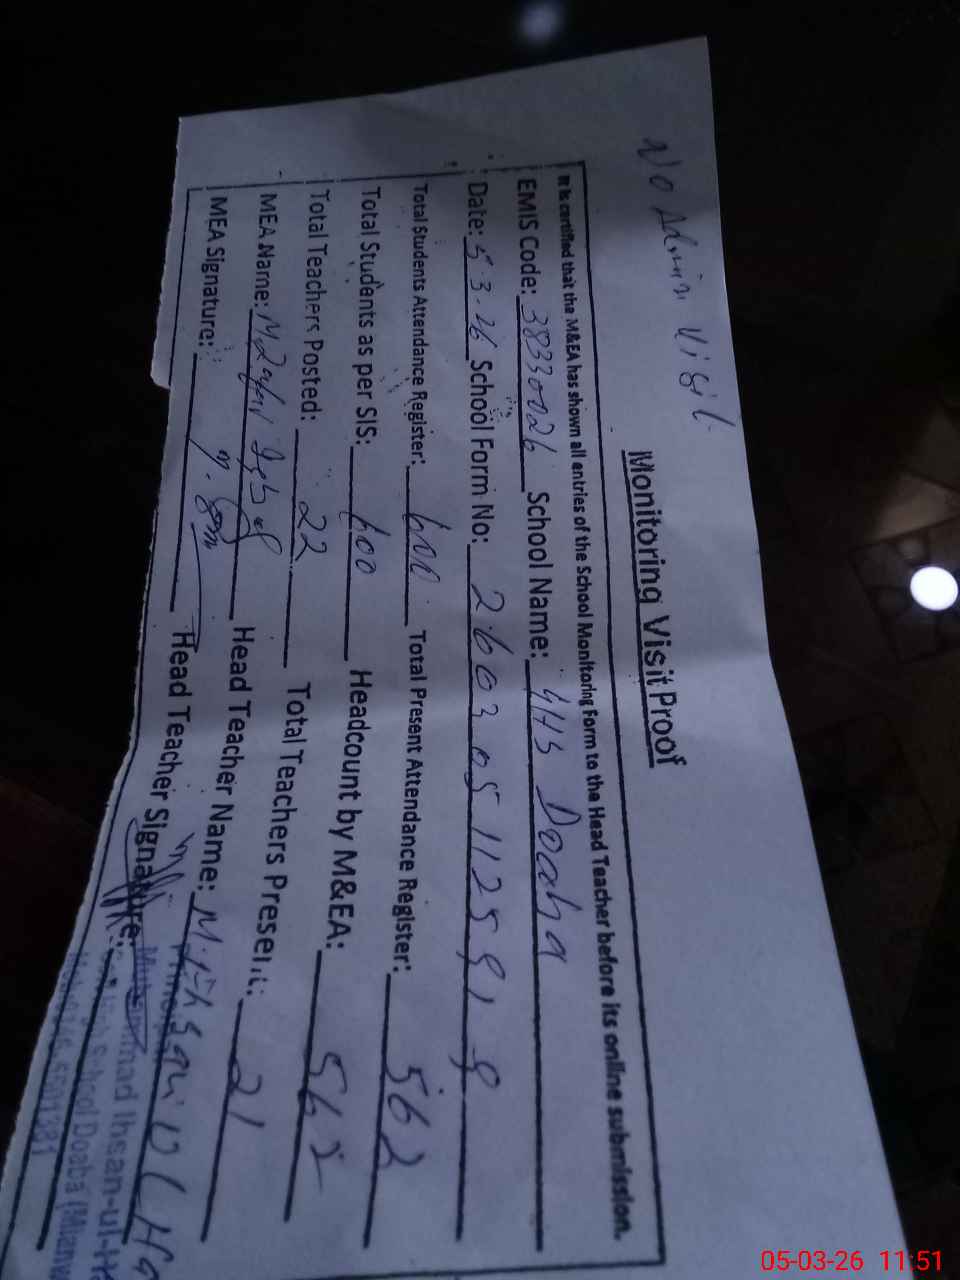 No Admin Visit
Monitoring Visit Proof
It is certified that the M&EA has shown all entries of the School Monitoring Form to the Head Teacher before its online submission.
EMIS Code: 38330026 School Name: GHS Doaba
Date: 5.3.26 School Form No: 2603051125919
Total Students Attendance Register: 600 Total Present Attendance Register: 562
Total Students as per SIS: 600 Headcount by M&EA: 562
Total Teachers Posted: 22 Total Teachers Present: 21
MEA Name: Iqbal Head Teacher Name: M. Ihsan Ul Ha
MEA Signature: Head Teacher Signature:
Muhammad Ihsan-ul-Ha
School Doaba (Mianw
05-03-26 11:51